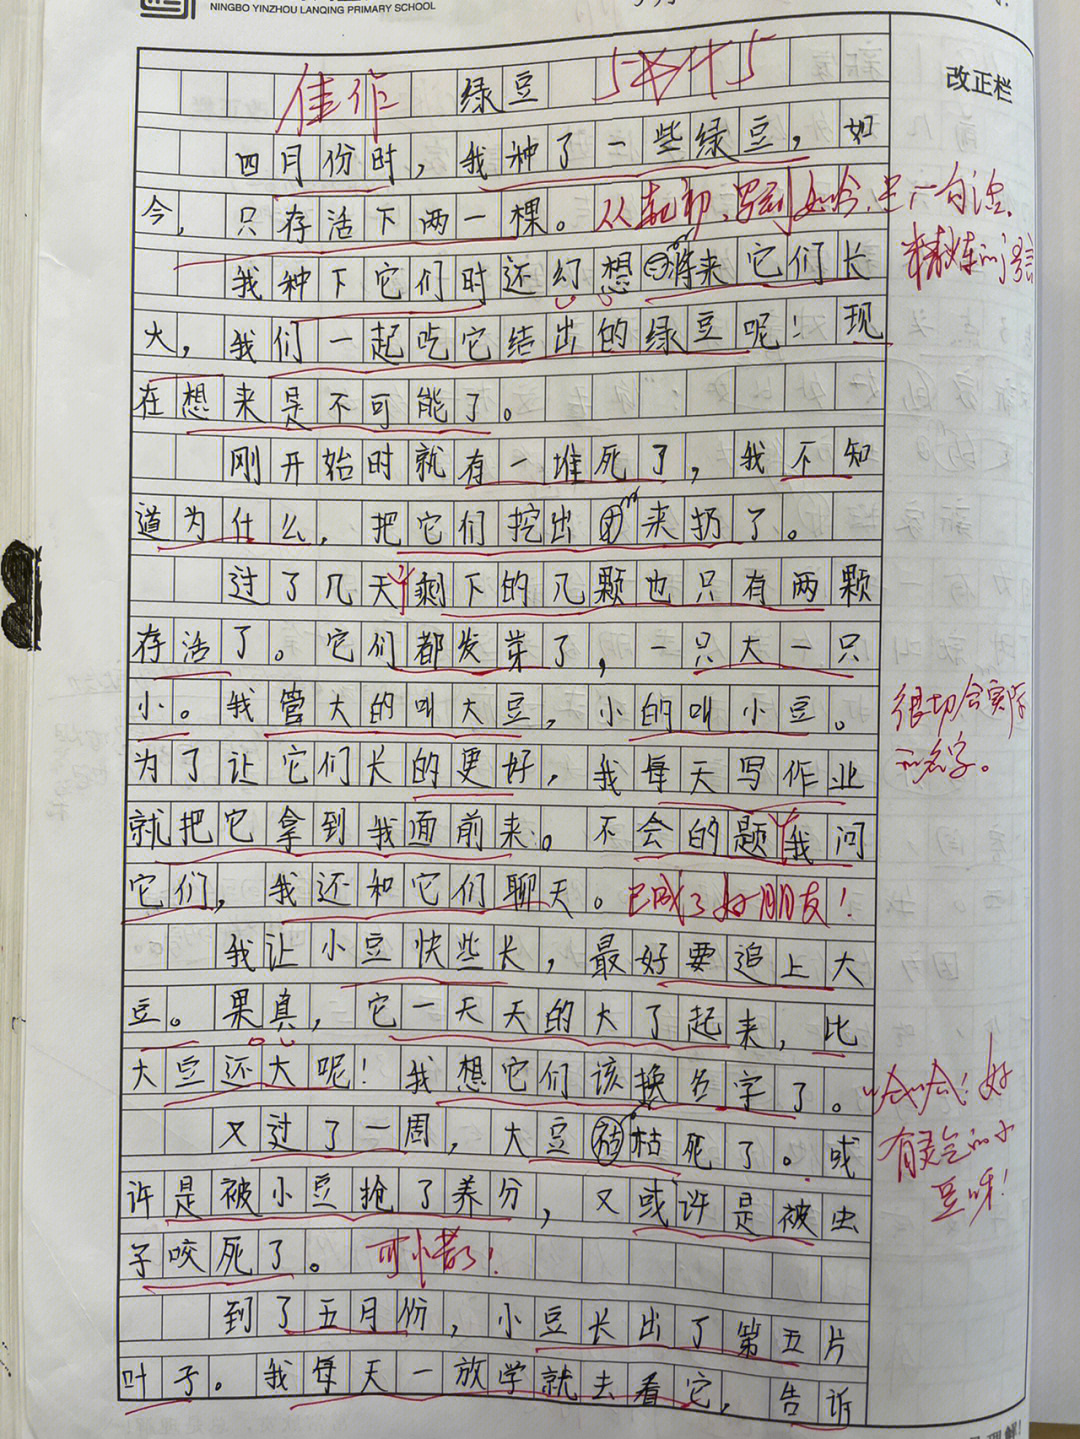 NINGBO YINZHOU LANQING PRIMARY SCHOOL
改正栏
佳作 绿豆 5☆+5
四月份时，我种了一些绿豆，如
今，只存活下两一棵。从起初，写到如今，只一句话，
精炼的语言
我种下它们时还幻想将来它们长
大，我们一起吃它结出的绿豆呢！现
在想来是不可能了。
刚开始时就有一堆死了，我不知
道为什么，把它们挖出来扔了。
过了几天，剩下的几颗也只有两颗
存活了。它们都发芽了，一只大一只
小。我管大的叫大豆，小的叫小豆。
很切合实际
的名字。
为了让它们长的更好，我每天写作业
就把它拿到我面前来。不会的题，我问
它们，我还和它们聊天。已成了好朋友！
我让小豆快些长，最好要追上大
豆。果真，它一天天的大了起来，比
大豆还大呢！我想它们该换名字了。
哈哈！好
有灵气的小
豆呀！
又过了一周，大豆枯死了。或
许是被小豆抢了养分，又或许是被虫
子咬死了。可惜了！
到了五月份，小豆长出了第五片
叶子。我每天一放学就去看它，告诉